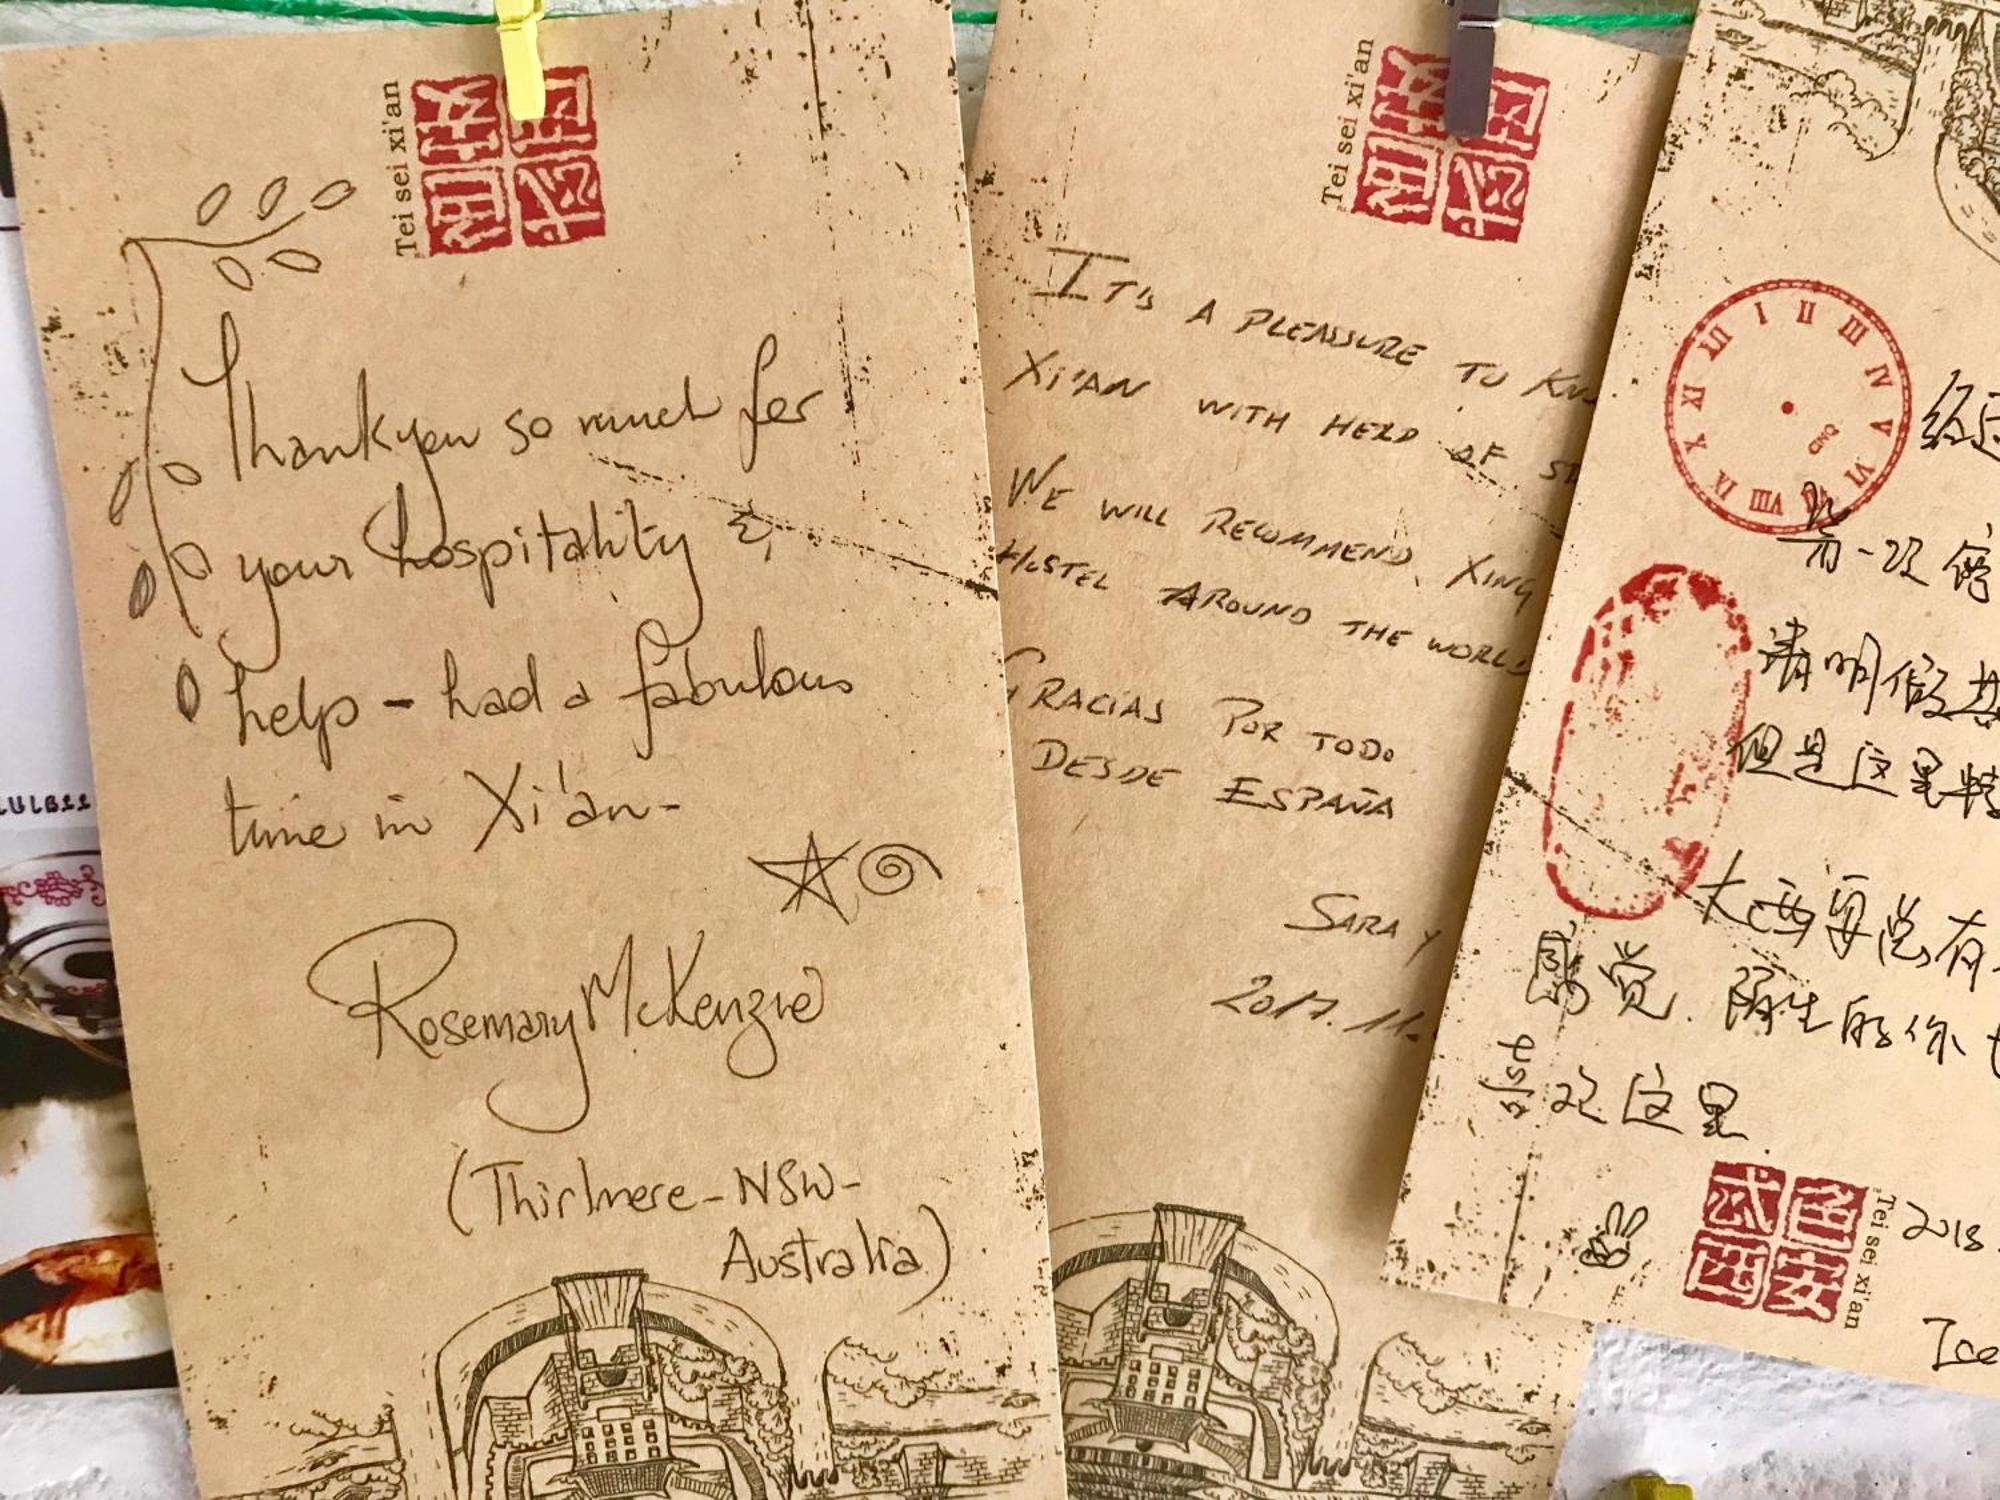 Tei sei xi'an
Thankyou so much for
your hospitality &
help - had a fabulous
time in Xi'an-
Rosemary McKenzie
(Thirlmere - NSW-
Australia)
Tei sei xi'an
IT'S A PLEASSURE TO
XI'AN WITH HERD OF
WE WILL RECOMMEND, XING
HOSTEL AROUND THE WORLD
GRACIAS POR TODO
DESDE ESPAÑA
SARA Y
2017.11.
I II III IV V VI VII VIII IX X XI XII
第一次
清明假
但是这里特
大西安总有
感觉.陌生的你
喜欢这里
Tei sei xi'an
2018.
Ice